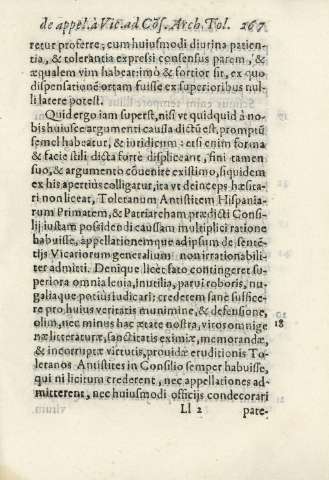 de appel. à Vic. ad Cõs. Arch. Tol. 267
retur proferre; cum huiusmodi diurina patien-
tia, & tolerantia expressi consensus parem, &
æqualem vim habeat: imò & fortior sit, ex quo
dispensationē omtam fuisse ex superioribus nul-
li latere potest.
Quid ergo iam superest, nisi vt quidquid à no-
bis huiusce argumenti caussa dictū est, promptū
semel habeatur, & iuridicum: etsi enim forma
& facie stili dicta forte displiceant, fini tamen
suo, & argumento cōuenire existimo, siquidem
ex his apertius colligatur, ita vt deinceps hæsita-
ri non liceat, Toleranum Antistitem Hispania-
rum Primatem, & Patriarcham prædicti Consi-
lij iustam possidendi caussam multiplici ratione
habuisse, appellationemque ad ipsum de sentē-
tijs Vicariorum generalium non irrationabili-
ter admitti. Denique licèt fato contingeret su-
periora omnia leuia, inutilia, parui roboris, nu-
galiaque potius iudicari; crederem sanè suffice-
re pro huius veritatis munimine, & defensione,
olim, nec minus hac ætate nostra, viros omnige
næ litteraturæ, sanctitatis eximiæ, memorandæ,
& incorruptæ virtutis, prouidæ eruditionis Tole-
ranos Antistites in Consilio semper habuisse,
qui ni licitum crederent, nec appellationes ad-
mitterent, nec huiusmodi officijs condecorari
18
Ll 2 pate-